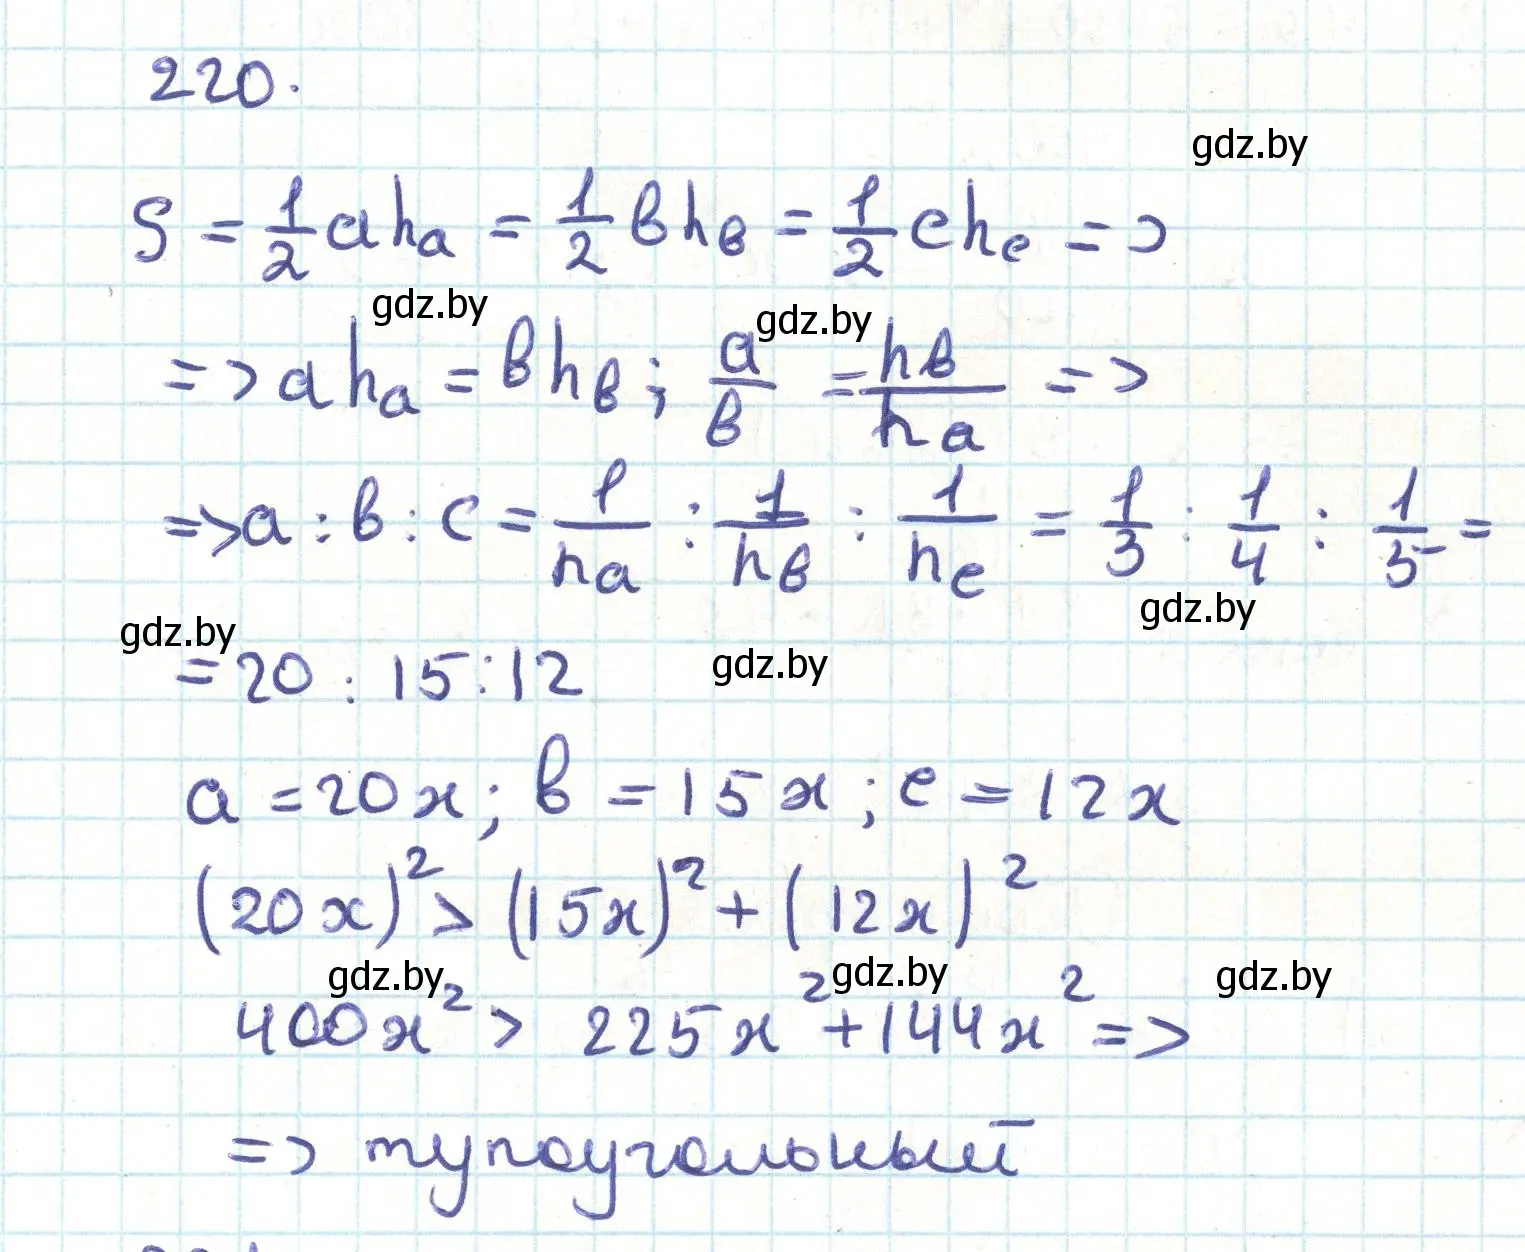 220.
gdz.by
S = 1/2 aha = 1/2 вhв = 1/2 chc =>
gdz.by
gdz.by
=> aha = вhв; a/в = hв/ha =>
=> a : в : c = 1/ha : 1/hв : 1/hc = 1/3 : 1/4 : 1/5 =
gdz.by
gdz.by
gdz.by
= 20 : 15 : 12
a = 20x; в = 15x; c = 12x
(20x)² > (15x)² + (12x)²
gdz.by
gdz.by
gdz.by
400x² > 225x² + 144x² =>
=> тупоугольный